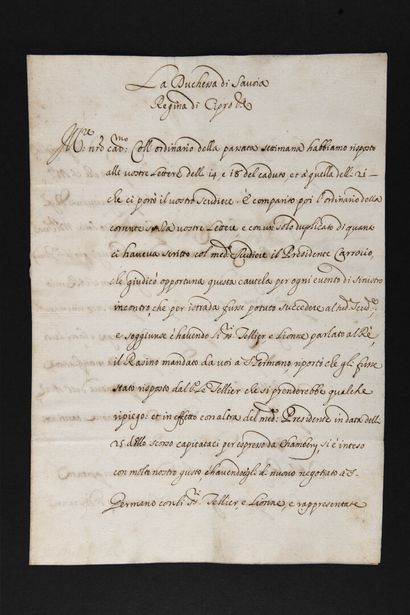 La Duchessa di Savoia
Regina di Cipro &c.
M.re n.ro Car.mo Coll'ordinario della passata settimana habbiamo risposto
alle vostre Lettere delli 14 e 18 del caduto et a quella dell: 21
che ci portò il vostro Scudiere È comparso poi l'ordinario della
corrente le vostre Lettere e con un solo duplicato di quanto
ci haveva scritto col med.mo Scudiere il Presidente Carroccio,
che giudicò opportuna questa cautela per ogni evento di sinistro
incontro, che per istrada fusse potuto succedere al
e soggiunse c'havendo li Tellier e Lionne parlato al Rè,
il Rasino mandato da voi a S. Germano, riportò che gli fusse
stato risposto dal Tellier che si prenderebbe qualche
ripiego: et in effetto con altra del med.mo Presidente in data delli
25 dello scorso capitataci per espresso da Chambery, si è inteso
con molto nostro gusto, c'havendo egli di nuovo negotiato a S.
Germano con li Tellier e Lionne, e rappresentate